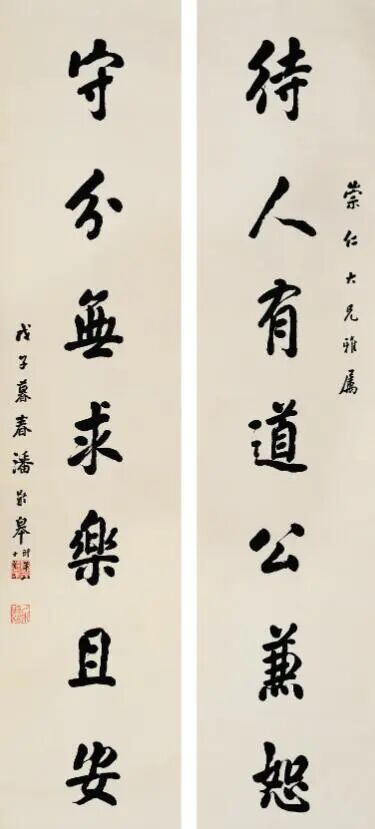 崇仁大兄雅屬
待人有道公兼恕
守分無求樂且安
戊子暮春潘齡皋時年